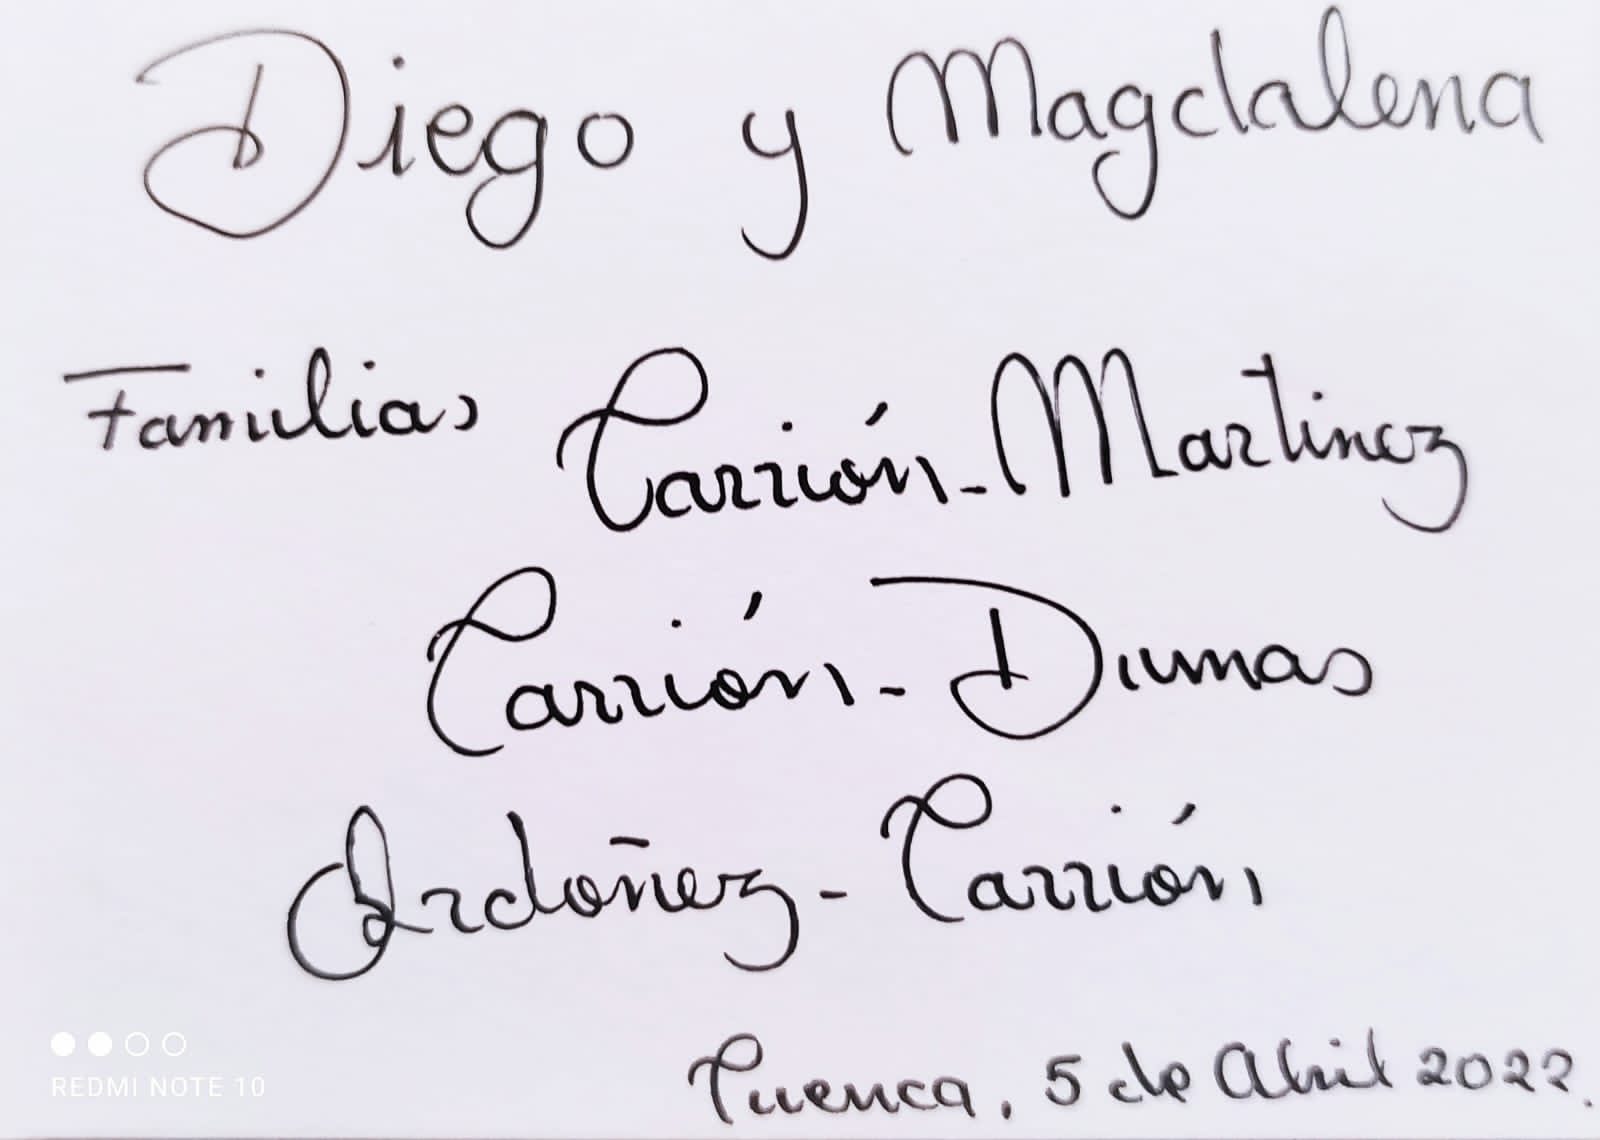 Diego y Magdalena
Familias Carrión-Martinez
Carrión-Dumas
Ordoñez-Carrión
Cuenca, 5 de Abril 2022.
REDMI NOTE 10